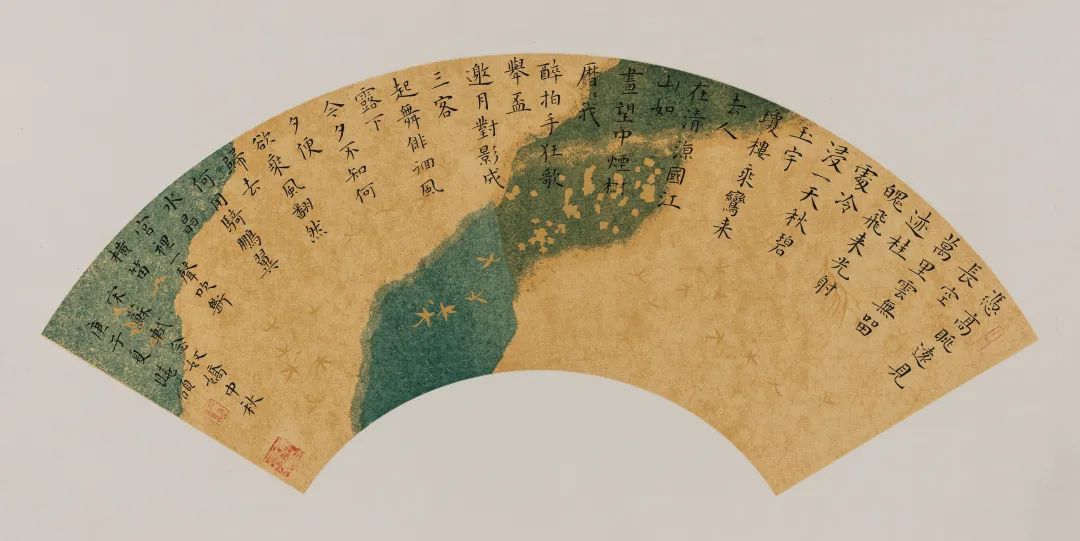 憑高眺遠見
長空
萬里雲無畱
迹桂
魄飛来光射
處冷
浸一天秋碧
玉宇
瓊樓乘鸞来
去人
在清涼國江
山如
畫望中煙樹
曆〻我
醉拍手狂歌
舉盃
邀月對影成
三客
起舞俳徊風
露下
今夕不知何
夕便
欲乘風翻然
歸去
何用騎鵬翼
水晶
宮裡一聲吹斷
橫笛
宋蘇軾念奴嬌中秋
庚子夏曉